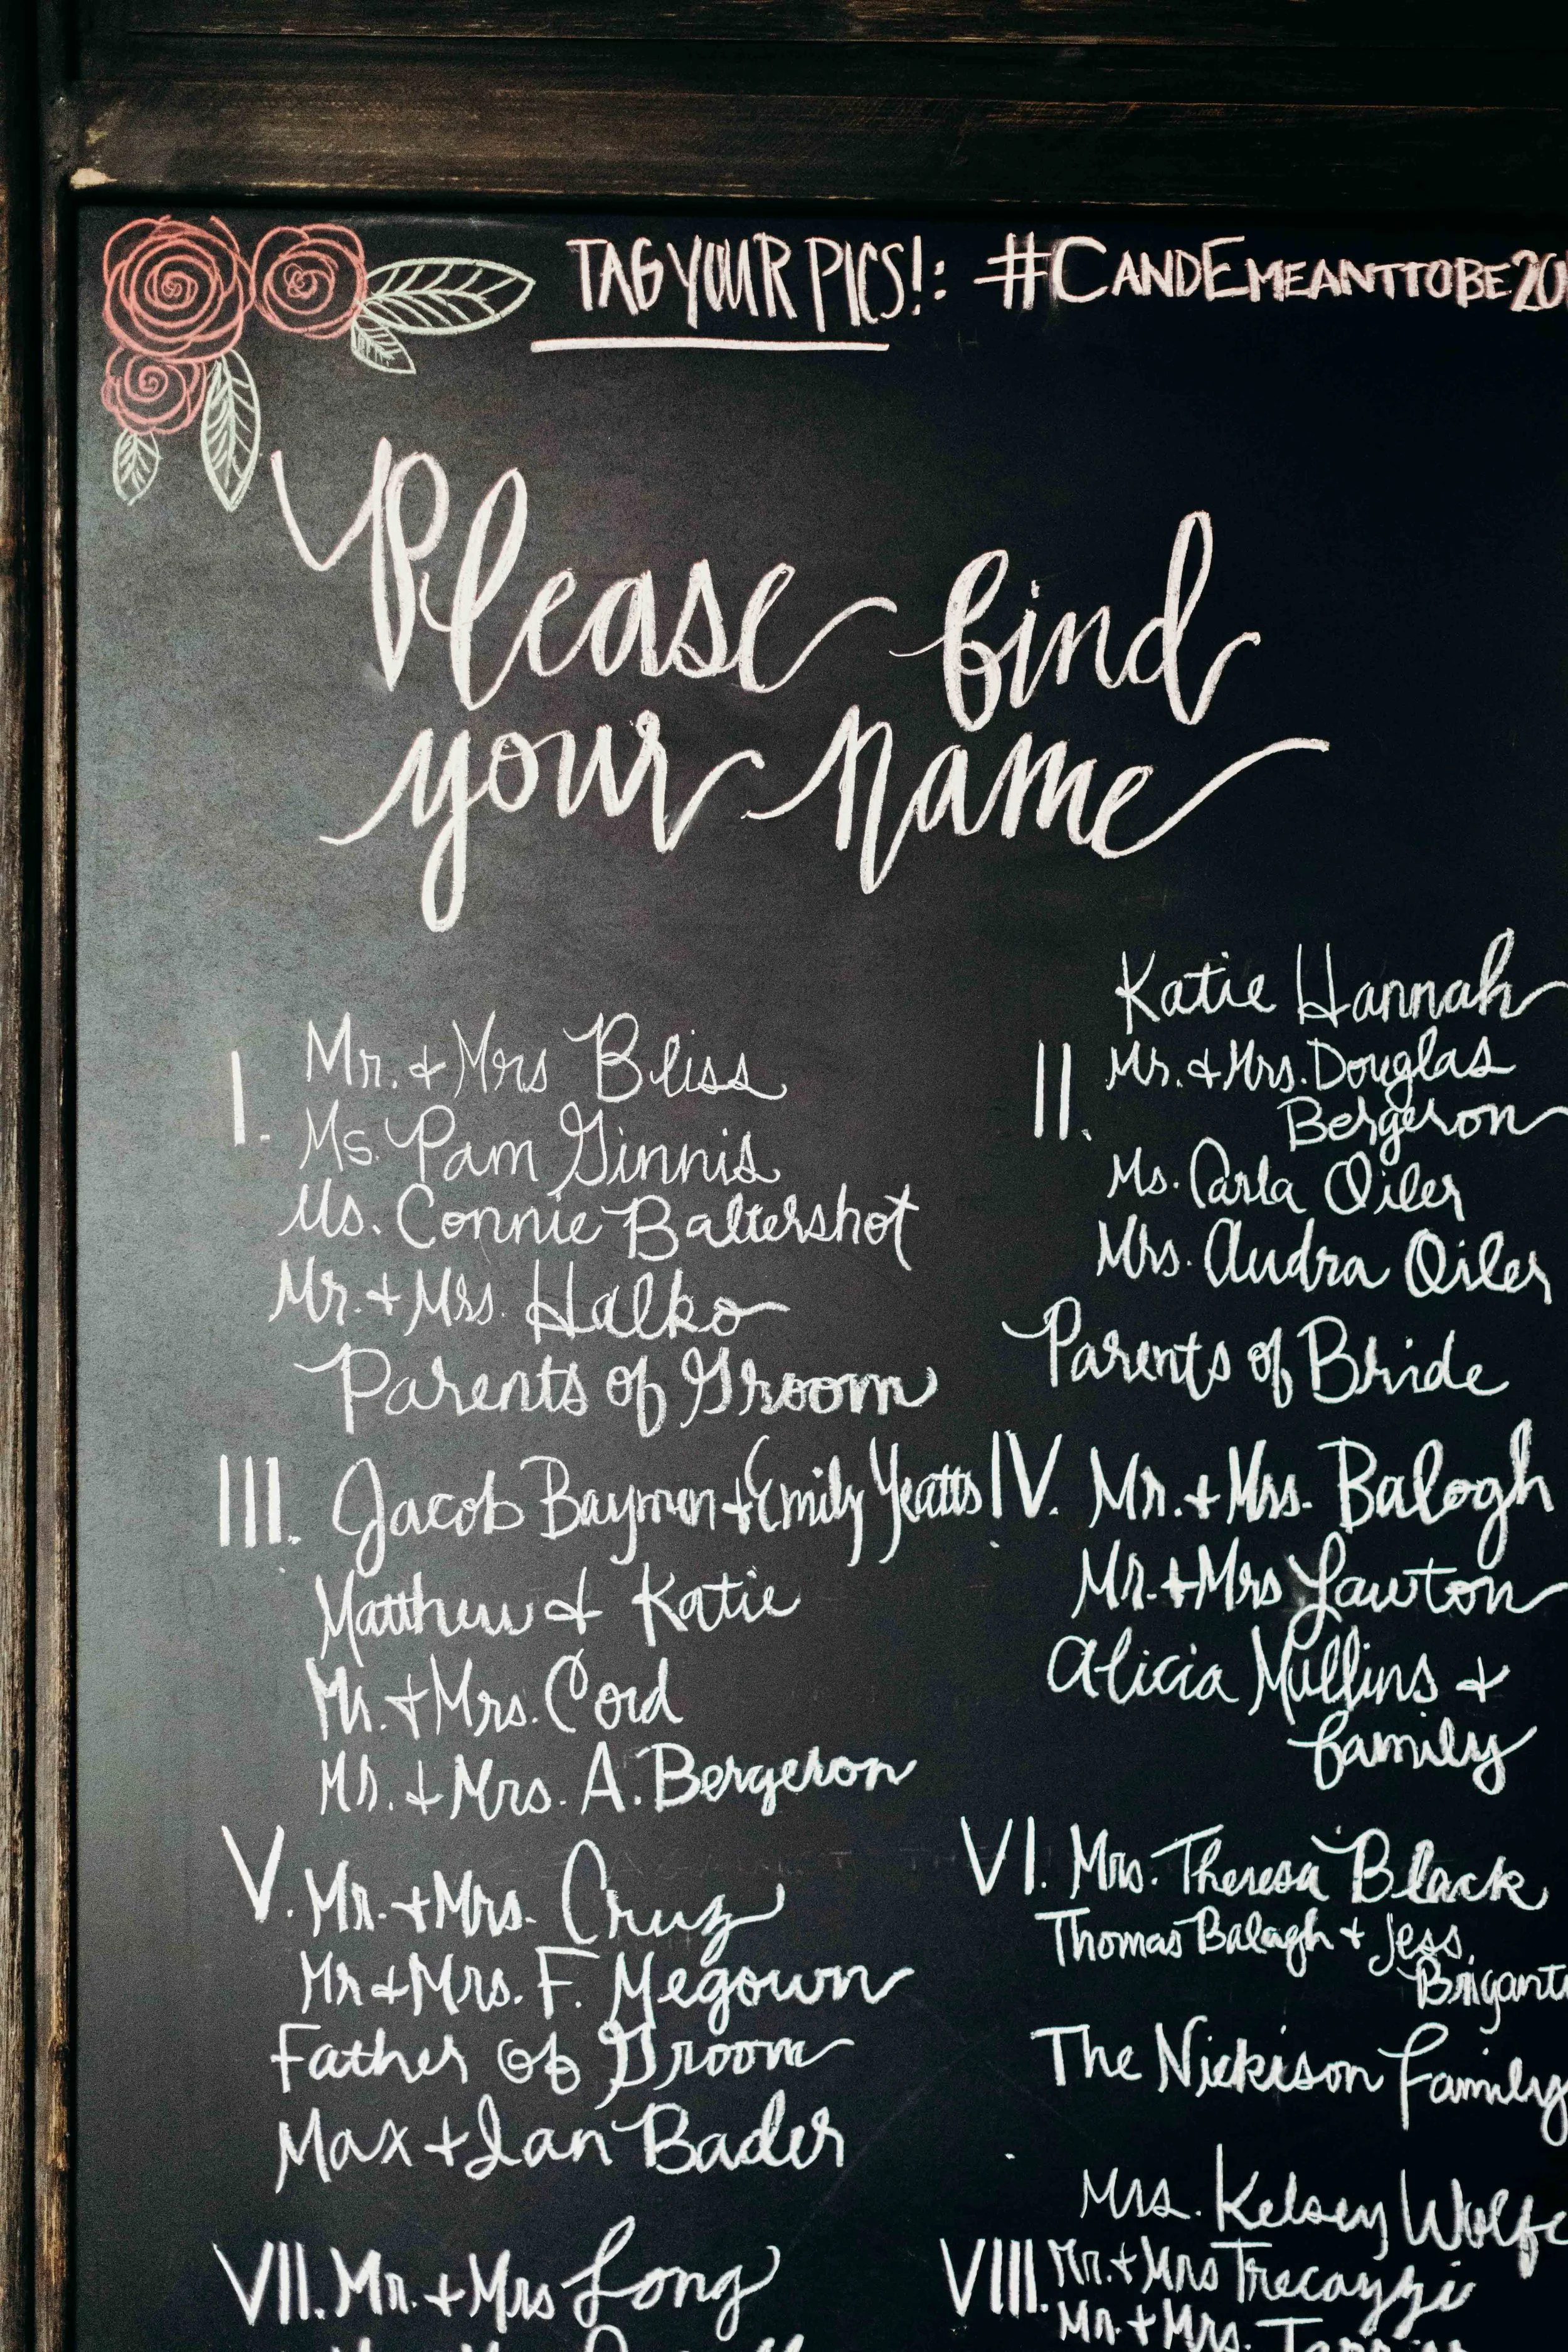 TAG YOUR PICS!: #CANDEMEANTTOBE20
Please find
your name
I. Mr. + Mrs Bliss
Ms. Pam Ginnis
Ms. Connie Baltershot
Mr. + Mrs. Halko
Parents of Groom
Katie Hannah
II. Mr. + Mrs. Douglas
Bergeron
Ms. Carla Oiler
Mrs. Audra Oiler
Parents of Bride
III. Jacob Baymon + Emily Yeatts
Matthew & Katie
Mr. + Mrs. Cord
Mr. + Mrs. A. Bergeron
IV. Mr. + Mrs. Balogh
Mr. + Mrs Lawton
Alicia Mullins +
family
V. Mr. + Mrs. Cruz
Mr + Mrs. F. Megown
Father of Groom
Max + Ian Bader
VI. Mrs. Theresa Black
Thomas Balagh + Jess
Brigant
The Nickison Family
VII. Mr. + Mrs Long
Mrs. Kelsey Wolfe
VIII. Mr. + Mrs Trecazzi
Mr. + Mrs.